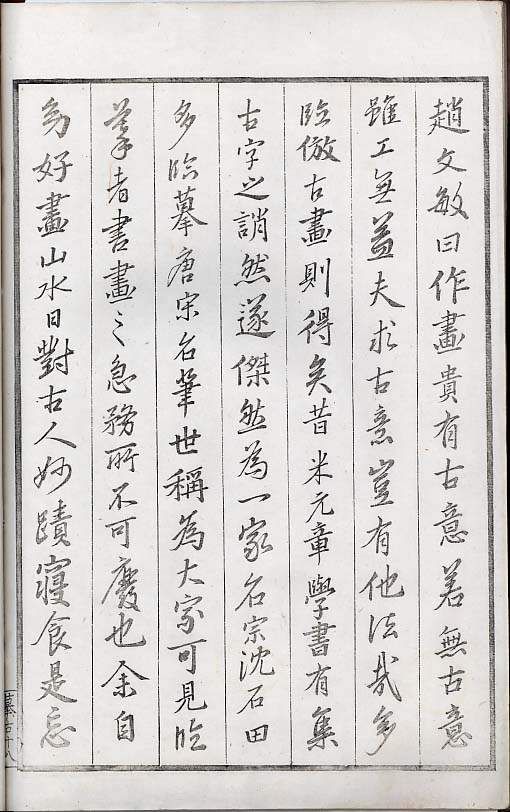 趙文敏曰作畫貴有古意若無古意
雖工無益夫求古意豈有他法哉多
臨倣古畫則得矣昔米元章學書有集
古字之誚然遂傑然為一家名宗沈石田
多臨摹唐宋名筆世稱為大家可見臨
摹者書畫之急務所不可廢也余自
幼好畫山水日對古人妙蹟寢食是忘